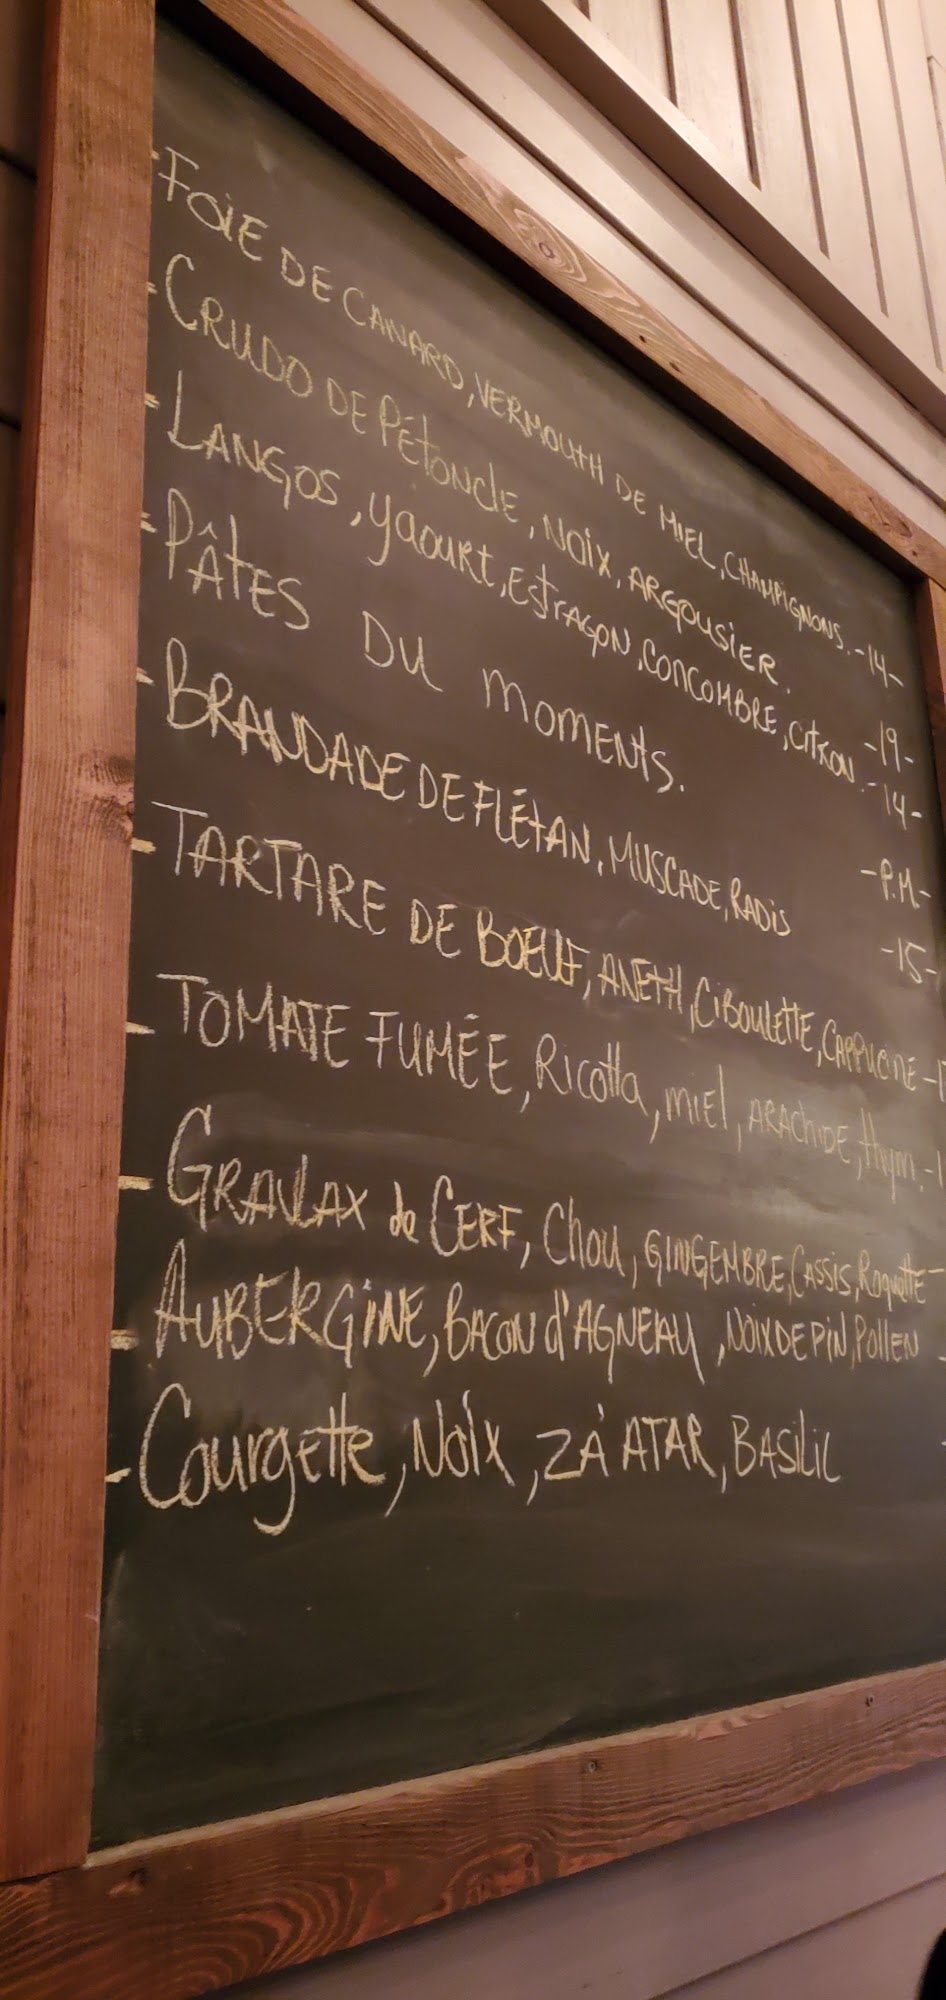 - Foie de Canard, Vermouth de Miel, Champignons. -14-
- Crudo de Pétoncle, Noix, Argousier. -19-
- Langos, yaourt, Estragon, Concombre, Citron. -14-
- Pâtes du moments. -P.M.-
- Brandade de Flétan, Muscade, Radis -15-
- Tartare de Boeuf, Aneth, Ciboulette, Cappucine
- Tomate Fumée, Ricotta, miel, Arachide, thym.
- Gravlax de Cerf, Chou, Gingembre, Cassis, Roquette
- Aubergine, Bacon d'Agneau, Noix de Pin, Pollen
- Courgette, Noix, Zà atar, Basilic